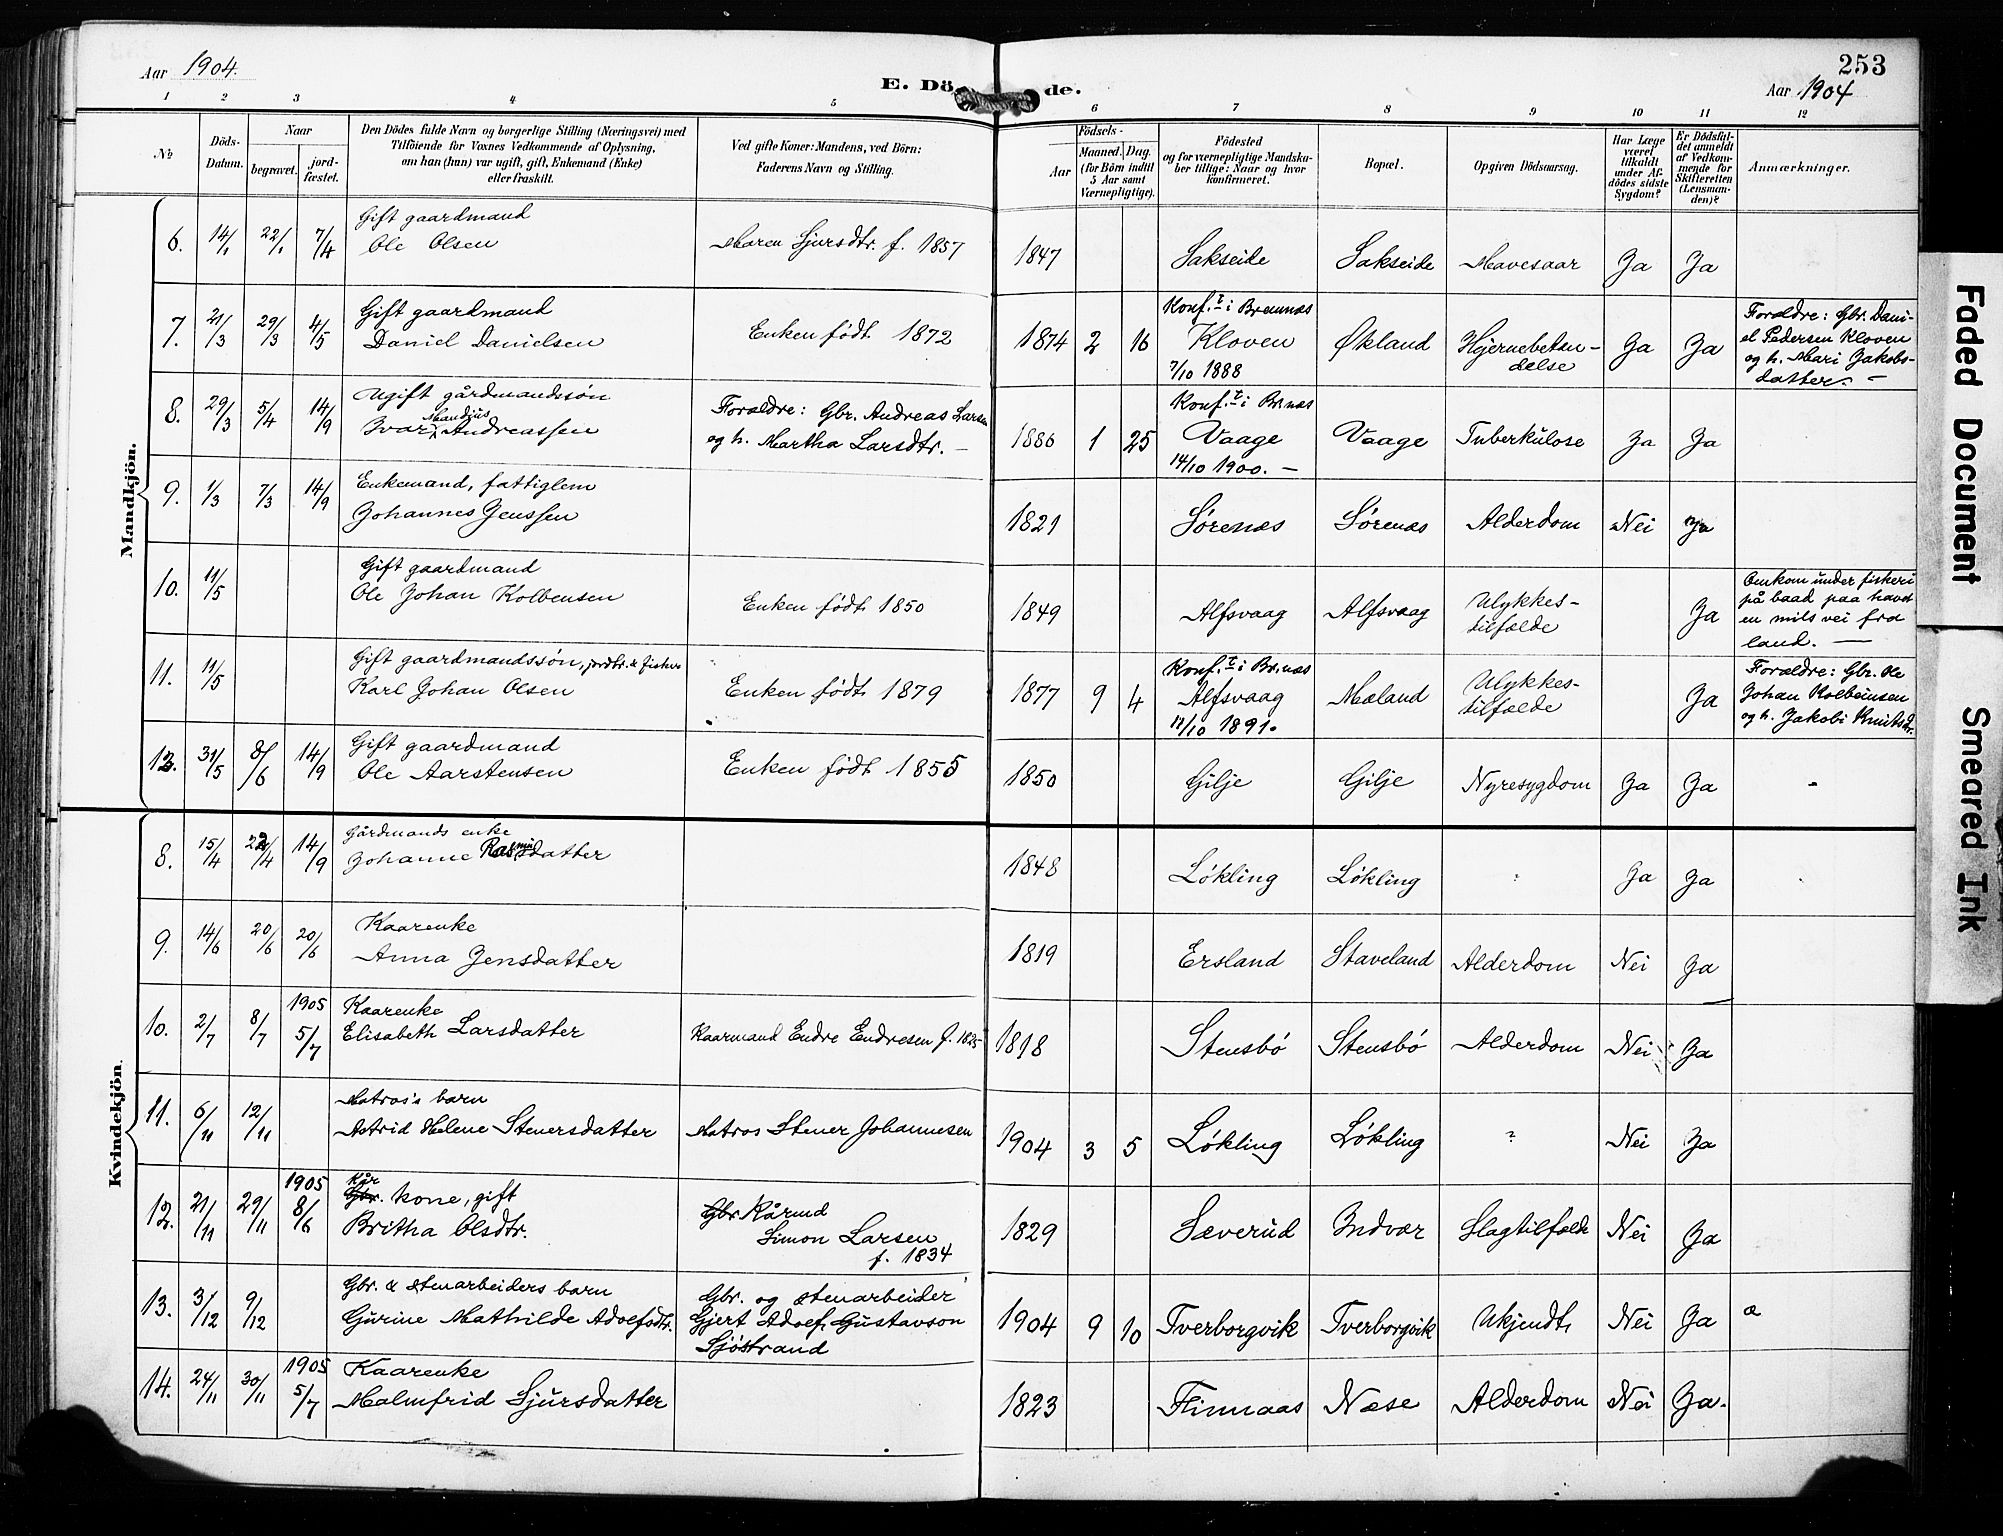 Aar 1904.
E. Dö
de.
253
Aar 1904
1 2 3 4 5 6 7 8 9 10 11 12
№
Döds-
Datum.
Naar
begravet.
jord-
fæstet.
Den Dödes fulde Navn og borgerlige Stilling (Næringsvei) med
Tilföiende for Voxnes Vedkommende af Oplysning,
om han (hun) var ugift, gift, Enkemand (Enke)
eller fraskilt.
Ved gifte Koner: Mandens, ved Börn:
Faderens Navn og Stilling.
Födsels-
Aar
Maaned. Dag.
(for Börn indtil
5 Aar samt
Værnepligtige).
Födested
og for værnepligtige Mandska-
ber tillige: Naar og hvor
konfirmeret.
Bopæl.
Opgiven Dödsaarsag.
Har Læge
været
tilkaldt
under Af-
dödes sidste
Sygdom?
Er Dödsfal-
det anmeldt
af Vedkom-
mende for
Skifteretten
(Lensman-
den)?
Anmærkninger.
Mandkjön.
6. 14/1 22/1 7/4 Gift gaardmand
Ole Olsen
Maren Sjursdtr. f. 1857 1847 Sakseide Sakseide Mavesaar Ja Ja
7. 21/3 29/3 4/5 Gift gaardmand
Daniel Danielsen
Enken født 1872 1874 2 16 Konf.t i Bremnæs
Kloven
7/10 1888
Økland Hjernebetæn-
delse
Ja Ja Forældre: Gbr. Dani-
el Pedersen Kloven
og h. Mari Jakobs-
datter. —
8. 29/3 5/4 14/9 Ugift gårdmandssøn
Mandius
Ivar Andreassen
Forældre: Gbr. Andreas Larsen
og h. Martha Larsdtr. —
1886 1 25 Konf.t i Br.næs
Vaage
14/10 1900. —
Vaage Tuberkulose Ja Ja
9. 1/3 7/3 14/9 Enkemand, fattiglem
Johannes Jenssen
1821 Sørenæs Sørenæs Alderdom Nei Ja
10. 11/5 Gift gaardmand
Ole Johan Kolbensen
Enken født 1850 1849 Alfsvaag Alfsvaag Ulykkes-
tilfælde
Ja Omkom under fiskeri
på baad paa havet
en mils vei fra
land. —
11. 11/5 Gift gaardmandssøn, jordbr. & fisker
Karl Johan Olsen
Enken født 1879 1877 9 4 Konf.t i Br.næs
Alfsvaag
/10 1891.
Mæland Ulykkes-
tilfælde
Ja Forældre: Gbr. Ole
Johan Kolbeinsen
og h. Jakobi Knutsdtr.
12. 31/5 8/6 14/9 Gift gaardmand
Ole Aarstensen
Enken født 1855 1850 Gilje Gilje Nyresygdom Ja Ja
Kvindekjön.
8. 15/4 22/4 14/9 Gårdmands enke
Johanne Rasmusdatter
1848 Løkling Løkling Ja Ja
9. 14/6 20/6 20/6 Kaarenke
Anna Jensdatter
1819 Ersland Staveland Alderdom Nei Ja
10. 2/7 8/7 1905 5/7 Kaarenke
Elisabeth Larsdatter
Kaarmand Endre Endresen f. 1825 1818 Stensbø Stensbø Alderdom Nei Ja
11. 6/11 12/11 Matros's barn
Astrid Helene Stenersdatter
Matros Stener Johannesen 1904 3 5 Løkling Løkling ? Nei Ja
12. 21/11 29/11 1905 8/6 Kår
Gbr. kone, gift
Britha Olsdtr.
Gbr Kårmd
Simon Larsen
f. 1834
1829 Sæverud Indvær Slagtilfælde Nei Ja
13. 3/12 9/12 Gbr. & stenarbeiders barn
Gurine Mathilde Adolfsdtr.
Gbr. og stenarbeider
Gjert Adolf Gustavson
Sjøstrand
1904 9 10 Tverborgvik Tverborgvik Ukjendt Nei Ja æ
14. 24/11 30/11 1905 5/7 Kaarenke
Malmfrid Sjursdatter
1823 Finnaas Næse Alderdom Nei Ja.
Faded Document
Smeared Ink